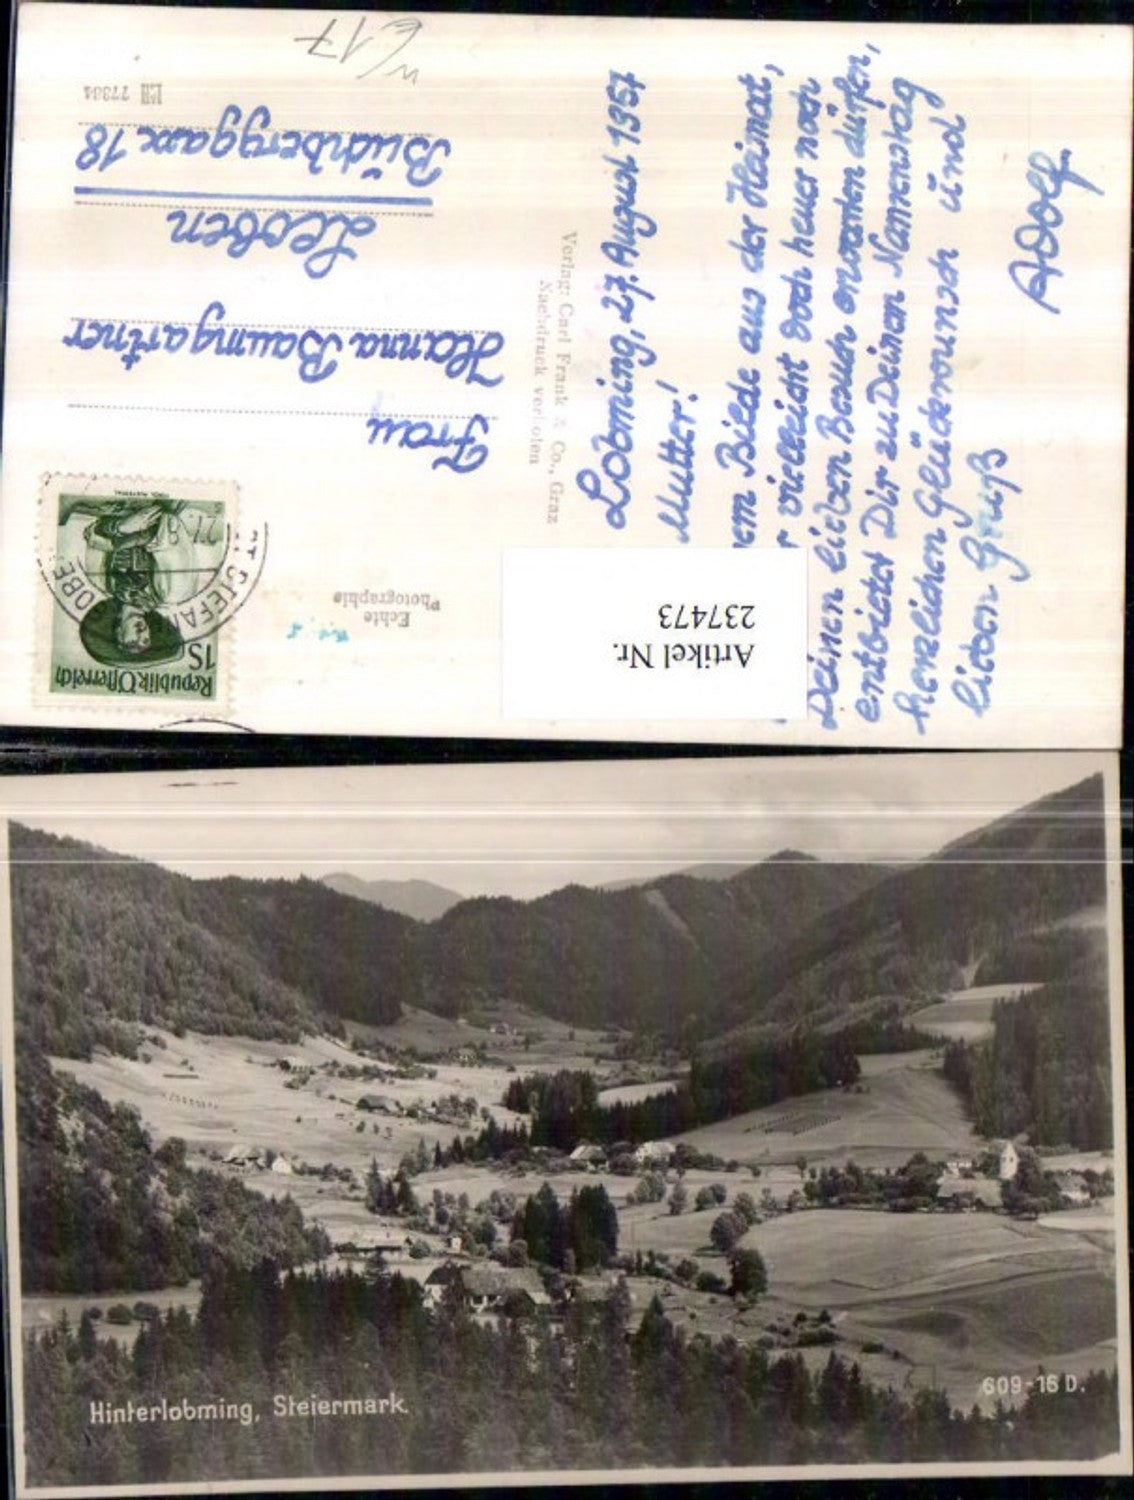 Lobming, 27. August 1957
Mutter!
Bilde aus der Heimat,
vielleicht doch heuer noch
Deinen lieben Besuch erwarten dürfen,
entbietet Dir zu Deinem Namenstag
herzlichen Glückwunsch und
lieben Gruß
Adolf
Verlag: Carl Frank & Co., Graz
Nachdruck verboten
Echte
Photographie
Republik Österreich
1S
Frau
Hanna Baumgartner
Leoben
Buchberggasse 18
77384
€ 17
Artikel Nr.
237473
Hinterlobming, Steiermark.
609-16 D.